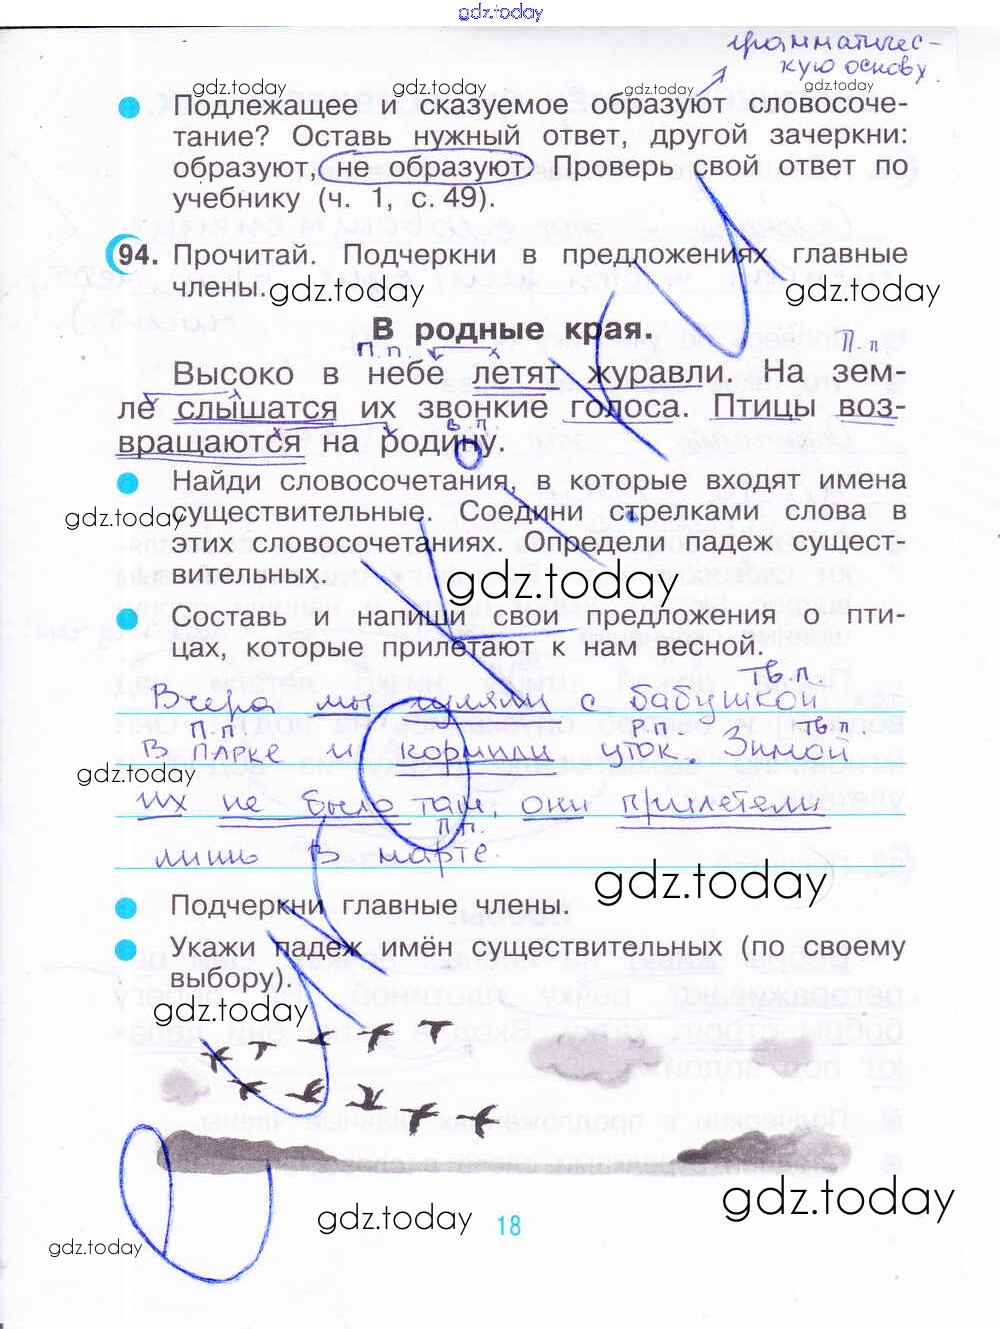 gdz.today
грамматичес-
кую основу
gdz.today gdz.today gdz.today gdz.today
Подлежащее и сказуемое образуют словосоче-
тание? Оставь нужный ответ, другой зачеркни:
образуют, не образуют. Проверь свой ответ по
учебнику (ч. 1, с. 49).
94. Прочитай. Подчеркни в предложениях главные
члены.
gdz.today gdz.today
В родные края.
П.п. х П.п
Высоко в небе летят журавли. На зем-
ле слышатся их звонкие голоса. Птицы воз-
х в.п.
вращаются на родину.
Найди словосочетания, в которые входят имена
gdz.today
существительные. Соедини стрелками слова в
этих словосочетаниях. Определи падеж сущест-
вительных.
gdz.today
Составь и напиши свои предложения о пти-
цах, которые прилетают к нам весной.
Тв.п.
Вчера мы гуляли с бабушкой
П.п Р.п. Тв.п.
в парке и кормили уток. Зимой
gdz.today
их не было там, они прилетели
П.п.
лишь в марте.
gdz.today
Подчеркни главные члены.
Укажи падеж имён существительных (по своему
выбору).
gdz.today
gdz.today
gdz.today
18
gdz.today